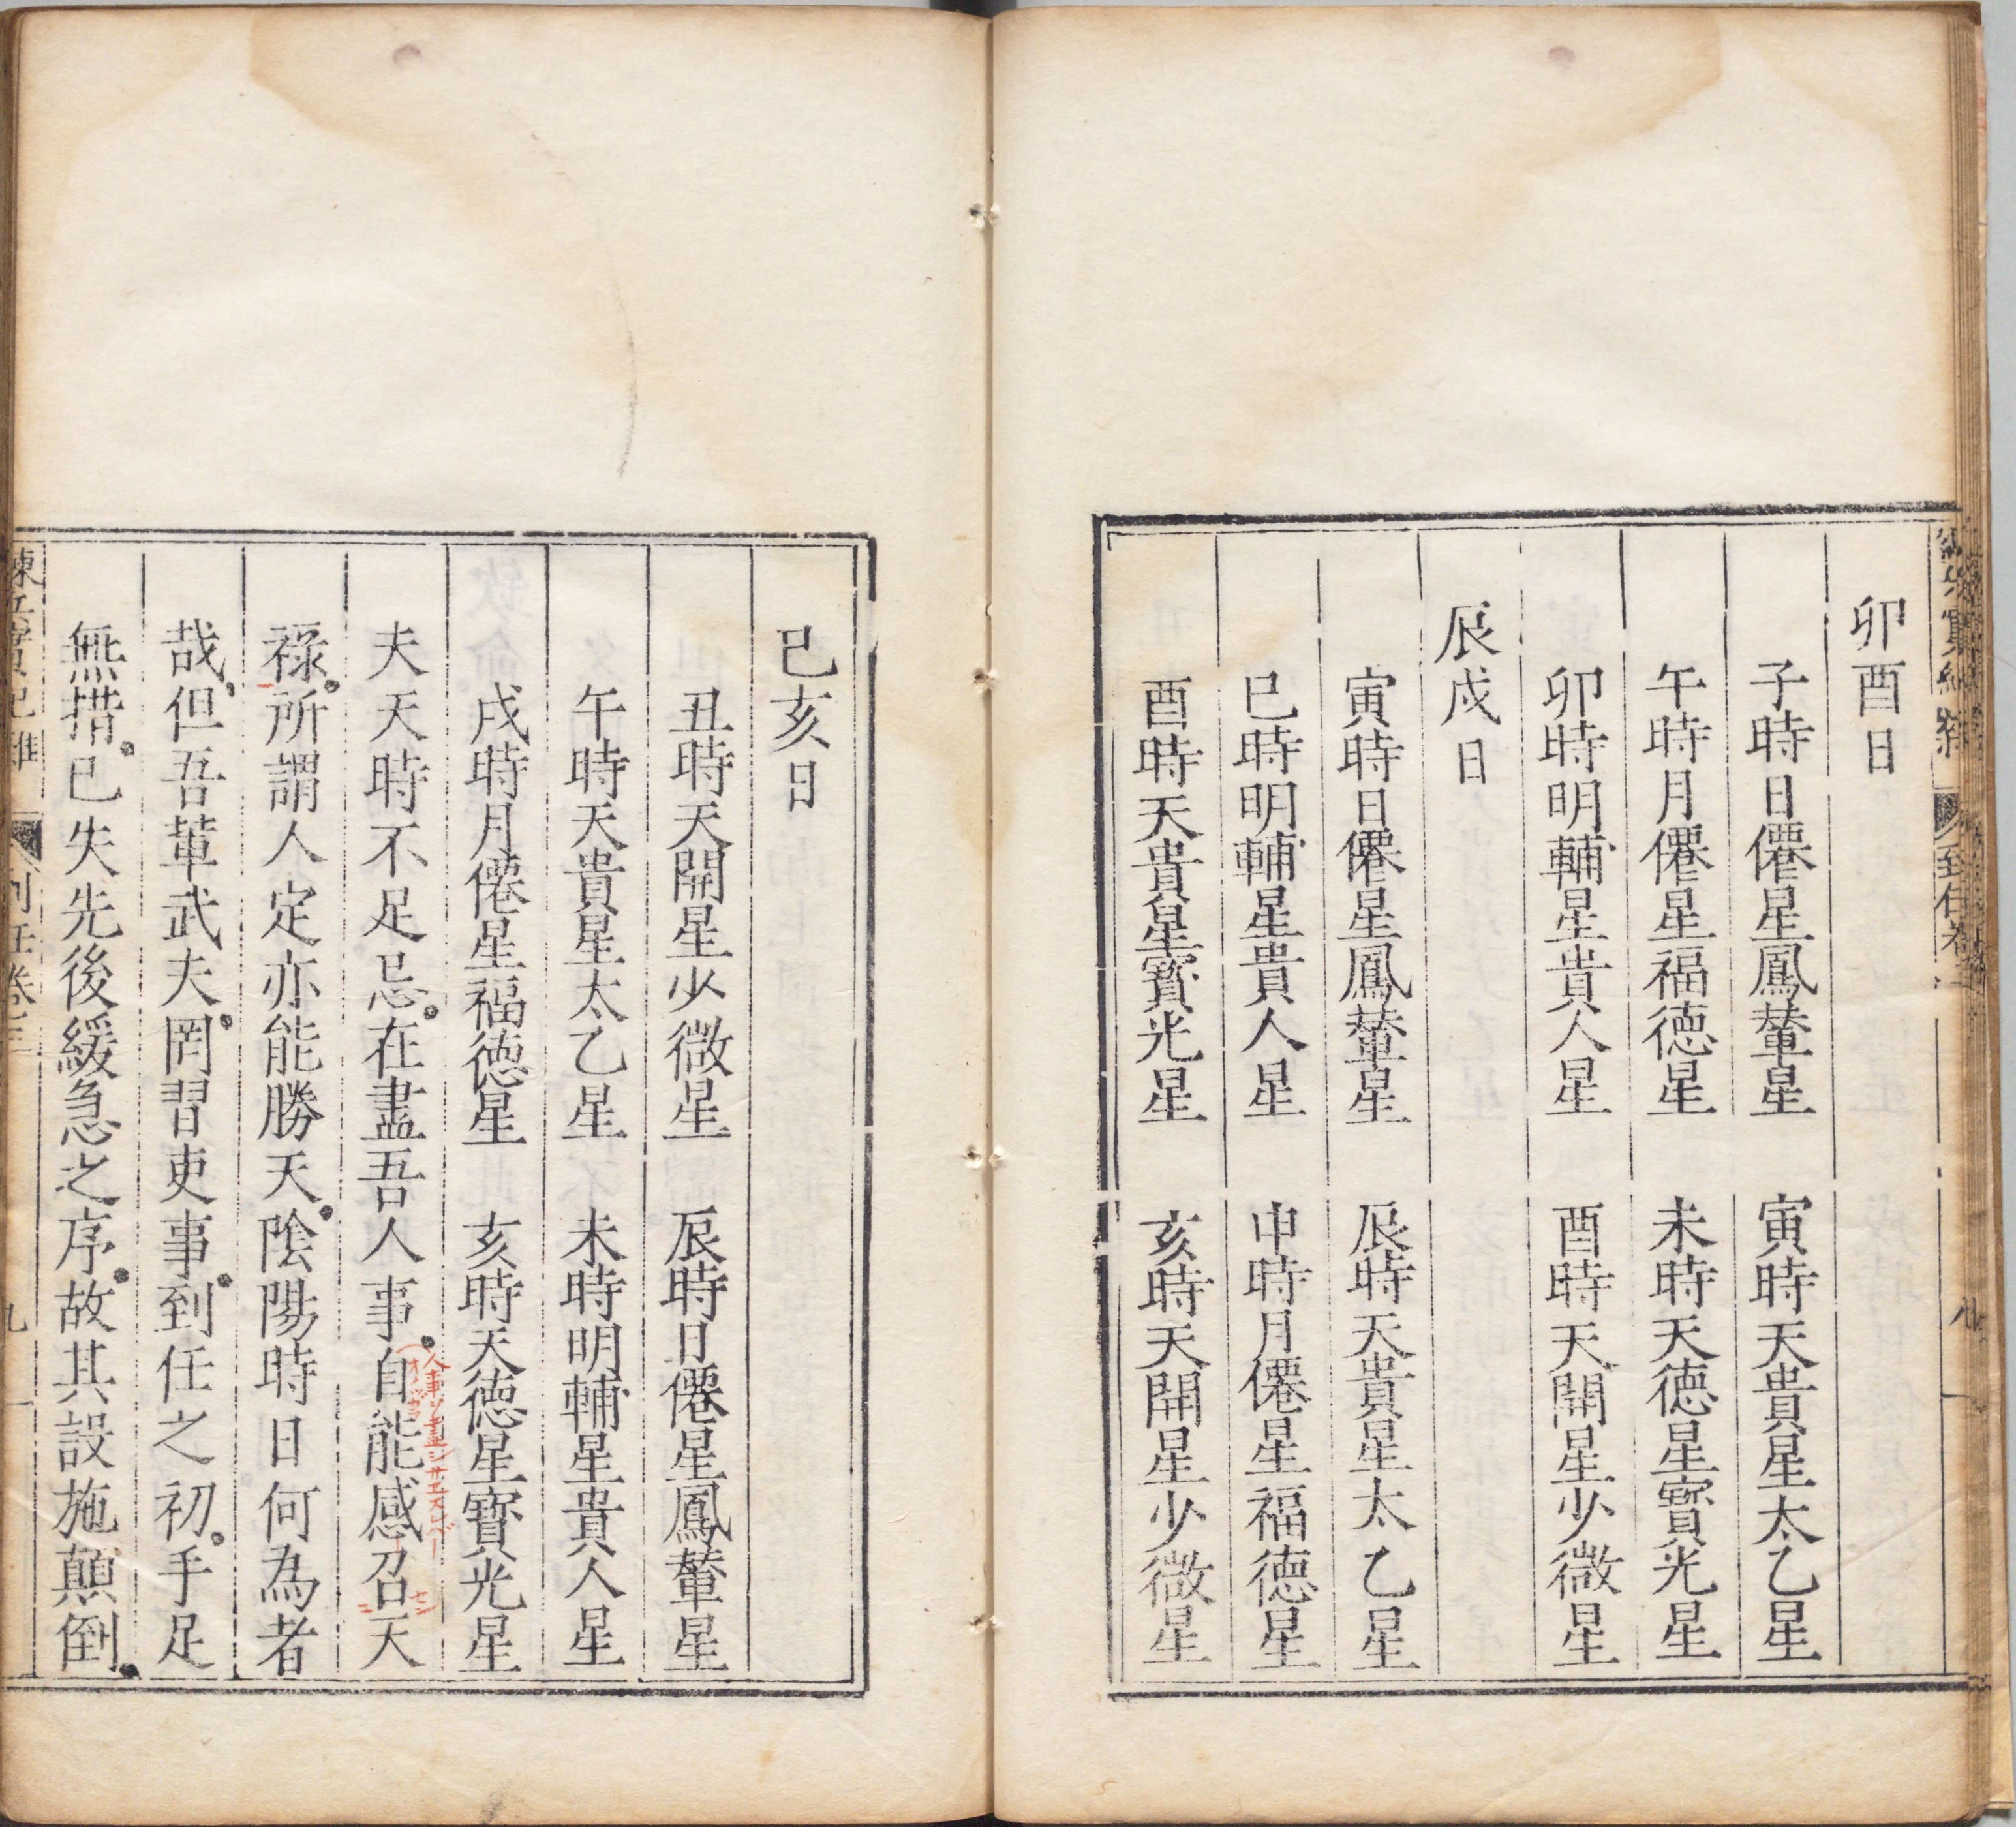 卯酉日
子時日僊星鳳輦星　寅時天貴星太乙星
午時月僊星福德星　未時天德星寶光星
卯時明輔星貴人星　酉時天開星少微星
辰戍日
寅時日僊星鳳輦星　辰時天貴星太乙星
巳時明輔星貴人星　申時月僊星福德星
酉時天貴星寶光星　亥時天開星少微星
到任卷
八
巳亥日
丑時天開星少微星　辰時日僊星鳳輦星
午時天貴星太乙星　未時明輔星貴人星
戌時月僊星福德星　亥時天德星寶光星
夫天時不足忌。在盡吾人事。自能感召天
祿。所謂人定亦能勝天。陰陽時日何為者
哉、但吾輩武夫。罔習吏事。到任之初。手足
無措。已失先後緩急之序。故其設施顛倒。
練兵實紀雜
到任卷三
九